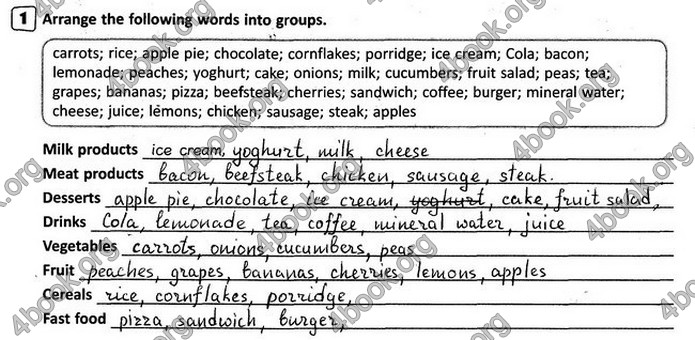 1 Arrange the following words into groups.
carrots; rice; apple pie; chocolate; cornflakes; porridge; ice cream; Cola; bacon;
lemonade; peaches; yoghurt; cake; onions; milk; cucumbers; fruit salad; peas; tea;
grapes; bananas; pizza; beefsteak; cherries; sandwich; coffee; burger; mineral water;
cheese; juice; lemons; chicken; sausage; steak; apples
Milk products ice cream, yoghurt, milk, cheese
Meat products bacon, beefsteak, chicken, sausage, steak.
Desserts apple pie, chocolate, ice cream, yoghurt, cake, fruit salad,
Drinks Cola, lemonade, tea, coffee, mineral water, juice
Vegetables carrots, onions, cucumbers, peas
Fruit peaches, grapes, bananas, cherries, lemons, apples
Cereals rice, cornflakes, porridge,
Fast food pizza, sandwich, burger,
4book.org